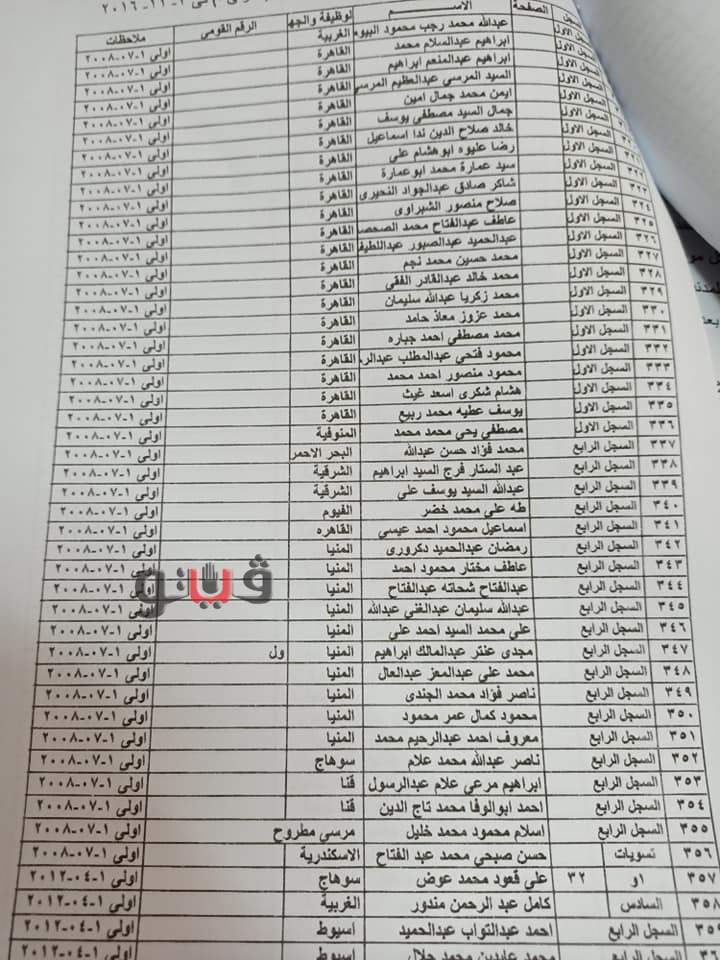 السجل الصفحة الاســـم الرقم القومى ملاحظات
السجل الاول عبدالله محمد رجب محمود الغربية اولى ١-٠٧-٢٠٠٨
السجل الاول ابراهيم عبدالسلام محمد القاهرة اولى ١-٠٧-٢٠٠٨
السجل الاول ابراهيم عبدالمنعم ابراهيم القاهرة اولى ١-٠٧-٢٠٠٨
السجل الاول السيد المرسي عبدالعظيم المرسي القاهرة اولى ١-٠٧-٢٠٠٨
السجل الاول ايمن محمد جمال امين القاهرة اولى ١-٠٧-٢٠٠٨
السجل الاول جمال السيد مصطفي يوسف القاهرة اولى ١-٠٧-٢٠٠٨
السجل الاول خالد صلاح الدين ندا اسماعيل القاهرة اولى ١-٠٧-٢٠٠٨
السجل الاول رضا عليوه ابوهشام على القاهرة اولى ١-٠٧-٢٠٠٨
السجل الاول سيد عمارة محمد ابوعمارة القاهرة اولى ١-٠٧-٢٠٠٨
السجل الاول شاكر صادق عبدالجواد القاهرة اولى ١-٠٧-٢٠٠٨
٣٢٤ السجل الاول صلاح منصور الشبراوى القاهرة اولى ١-٠٧-٢٠٠٨
٣٢٥ السجل الاول عاطف عبدالفتاح محمد القاهرة اولى ١-٠٧-٢٠٠٨
٣٢٦ السجل الاول عبدالحميد عبدالصبور عبداللطيف القاهرة اولى ١-٠٧-٢٠٠٨
٣٢٧ السجل الاول محمد حسين محمد نجم القاهرة اولى ١-٠٧-٢٠٠٨
٣٢٨ السجل الاول محمد خالد عبدالقادر الفقي القاهرة اولى ١-٠٧-٢٠٠٨
٣٢٩ السجل الاول محمد زكريا عبدالله سليمان القاهرة اولى ١-٠٧-٢٠٠٨
٣٣٠ السجل الاول محمد عزوز معاذ حامد القاهرة اولى ١-٠٧-٢٠٠٨
٣٣١ السجل الاول محمد مصطفي احمد جباره القاهرة اولى ١-٠٧-٢٠٠٨
٣٣٢ السجل الاول محمود فتحي عبدالمطلب القاهرة اولى ١-٠٧-٢٠٠٨
٣٣٣ السجل الاول محمود منصور احمد محمد القاهرة اولى ١-٠٧-٢٠٠٨
٣٣٤ السجل الاول هشام شكرى اسعد غيث القاهرة اولى ١-٠٧-٢٠٠٨
٣٣٥ السجل الاول يوسف عطيه محمد ربيع القاهرة اولى ١-٠٧-٢٠٠٨
٣٣٦ السجل الاول مصطفي يحي محمد محمد المنوفية اولى ١-٠٧-٢٠٠٨
٣٣٧ السجل الرابع محمد فؤاد حسن عبدالله البحر الاحمر اولى ١-٠٧-٢٠٠٨
٣٣٨ السجل الرابع عبد الستار فرج السيد ابراهيم الشرقية اولى ١-٠٧-٢٠٠٨
٣٣٩ السجل الرابع عبدالله السيد يوسف على الشرقية اولى ١-٠٧-٢٠٠٨
٣٤٠ السجل الرابع طه على محمد خضر الفيوم اولى ١-٠٧-٢٠٠٨
٣٤١ السجل الرابع اسماعيل محمود احمد عيسي القاهره اولى ١-٠٧-٢٠٠٨
٣٤٢ السجل الرابع رمضان عبدالحميد دكرورى المنيا اولى ١-٠٧-٢٠٠٨
٣٤٣ السجل الرابع عاطف مختار محمود احمد المنيا ڤيتو
٣٤٤ السجل الرابع عبدالفتاح شحاته عبدالفتاح المنيا
٣٤٥ السجل الرابع عبدالله سليمان عبدالغنى عبدالله المنيا اولى ١-٠٧-٢٠٠٨
٣٤٦ السجل الرابع على محمد السيد احمد على المنيا اولى ١-٠٧-٢٠٠٨
٣٤٧ السجل الرابع مجدى عنتر عبدالمالك ابراهيم المنيا ول اولى ١-٠٧-٢٠٠٨
٣٤٨ السجل الرابع محمد على عبدالمعز عبدالعال المنيا اولى ١-٠٧-٢٠٠٨
٣٤٩ السجل الرابع ناصر فؤاد محمد الجندى المنيا اولى ١-٠٧-٢٠٠٨
٣٥٠ السجل الرابع محمود كمال عمر محمود المنيا اولى ١-٠٧-٢٠٠٨
٣٥١ السجل الرابع معروف احمد عبدالرحيم محمد المنيا اولى ١-٠٧-٢٠٠٨
٣٥٢ السجل الرابع ناصر عبدالله محمد علام سوهاج اولى ١-٠٧-٢٠٠٨
٣٥٣ السجل الرابع ابراهيم مرعي علام عبدالرسول قنا اولى ١-٠٧-٢٠٠٨
٣٥٤ السجل الرابع احمد ابوالوفا محمد تاج الدين قنا اولى ١-٠٧-٢٠٠٨
٣٥٥ السجل الرابع اسلام محمود محمد خليل مرسي مطروح اولى ١-٠٧-٢٠٠٨
٣٥٦ تسويات حسن صبحي محمد عبد الفتاح الاسكندرية اولى ١-٠٧-٢٠٠٨
٣٥٧ ٣٢ على قعود محمد عوض سوهاج اولى ١-٠٤-٢٠١٢
٣٥٨ السادس كامل عبد الرحمن مندور الغربية اولى ١-٠٤-٢٠١٢
السجل الرابع احمد عبدالتواب عبدالحميد اسيوط اولى ١-٠٤-٢٠١٢
السجل الرابع محمد عابدين محمد جلال اسيوط